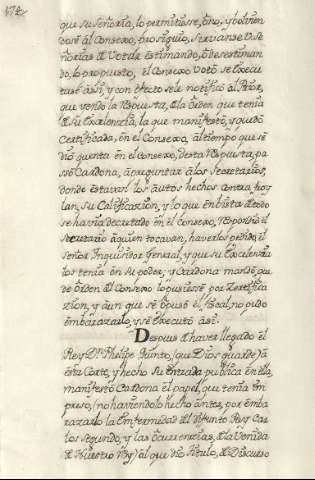 172
que su Señoría, lo permitiesse, ô no, y bolvien
dose al Consexo, prosiguio, servianse Vs. Se
ñorias de Votar estimando, ô desestiman
do, lo propuesto, el Consexo Votó se Execu
tasse assi, y con efecto se le notificó al Prior,
que vendo la Respuesta, de la Orden que tenia
de su Excelenzia, la que manifestó, y quedó
Certificada, en el Consexo, al tiempo que se
dió quenta en el Consexo, desta Respuesta, pa
ssó Cardona, à preguntar à los Secretarios,
donde estavan los autos hechos contra froy
lan, su Calificazion, y lo que en Vista de todo
se havia decretado en el Consexo, Respondió el
Secretario à quien tocavan, haverlos pedido, el
Señor Inquisidor General, y que su Excelenzia
los tenia en su poder; y Cardona mandó que
de Orden del Consexo lo pusiesse por Zertifica
zion, y aun que se Opuso el fiscal, no pudo
embarazarlo, y se Executó assi.
Despues de haver llegado el
Rey Dn. Phelipe Quinto, (que Dios guarde) à
esta Corte, y hecho su Entrada publica en ella,
manifestó Cardona el papel, que tenia Im
preso, (no haviendolo hecho antes, por emba
razarlo la Enfermedad del Difunto Rey Car
los segundo, y las Ocurrenzias, de la Venida
de Nuestro Rey) al que dió titulo, de Discurso